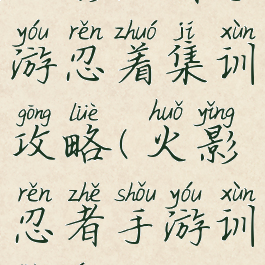 yóu rěn zhuó jí xùn
游忍着集训
gōng lüè huǒ yǐng
攻略(火影
rěn zhě shǒu yóu xùn
忍者手游训